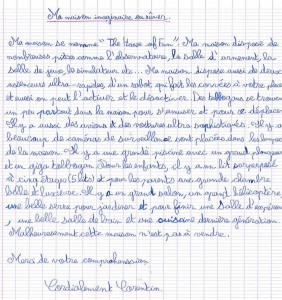 Ma maison imaginaire ou rêver.
Ma maison se nomme "The House of Fun". Ma maison dispose de
nombreuses pièces comme l'observatoire, la salle d'armement, la
salle de jeux, le simulateur etc... Ma maison dispose aussi de deux
ascenseurs ultra-rapides d'un robot qui fait les corvées à votre place
et aussi on peut l'activer et le désactiver. Des toboggans se trouvent
un peu partout dans la maison pour s'amuser et pour se déplacer.
Il y a aussi des avions et des voitures ultra sophistiqués. Il y a
beaucoup de caméras de surveillance sont placées dans les
de la maison. Il y a une grande piscine avec un grand
et un giga toboggan. Pour les enfants, il y a un lit superposé
à cinq étages (5 lits) et pour les parents une grande chambre
belle et luxieuse. Il y a un grand salon, un grand hélicoptère
une belle serre pour jardiner et pour finir une salle d'expérience
, une belle salle de bain et une cuisine dernière génération.
Malheureusement cette maison n'est pas à vendre.
Merci de votre compréhension
Cordialement Corentin.